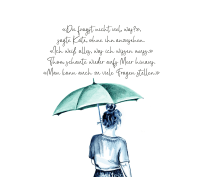 «Du fragst nicht viel, was?»,
sagte Kati, ohne ihn anzusehen.
«Ich weiß alles, was ich wissen muss.»
Thom schaute wieder aufs Meer hinaus.
«Man kann auch zu viele Fragen stellen.»